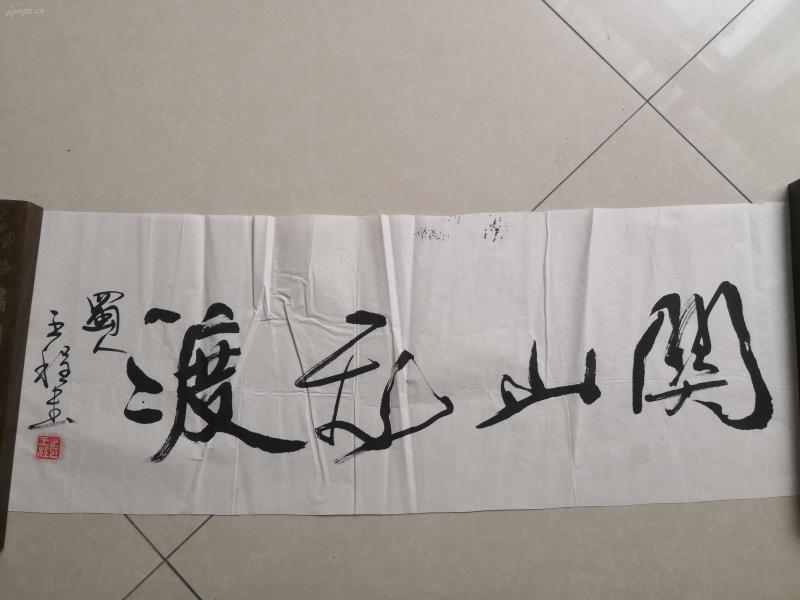 關山飛渡
蜀人
王程書